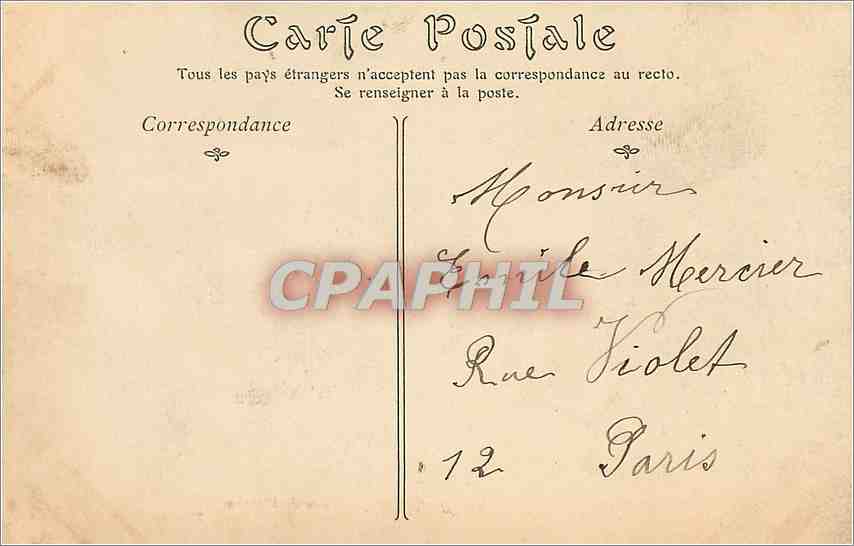 Carte Postale
Tous les pays étrangers n'acceptent pas la correspondance au recto.
Se renseigner à la poste.
Correspondance
Adresse
Monsieur
Emile Mercier
CPAPHIL
Rue Violet
12 Paris